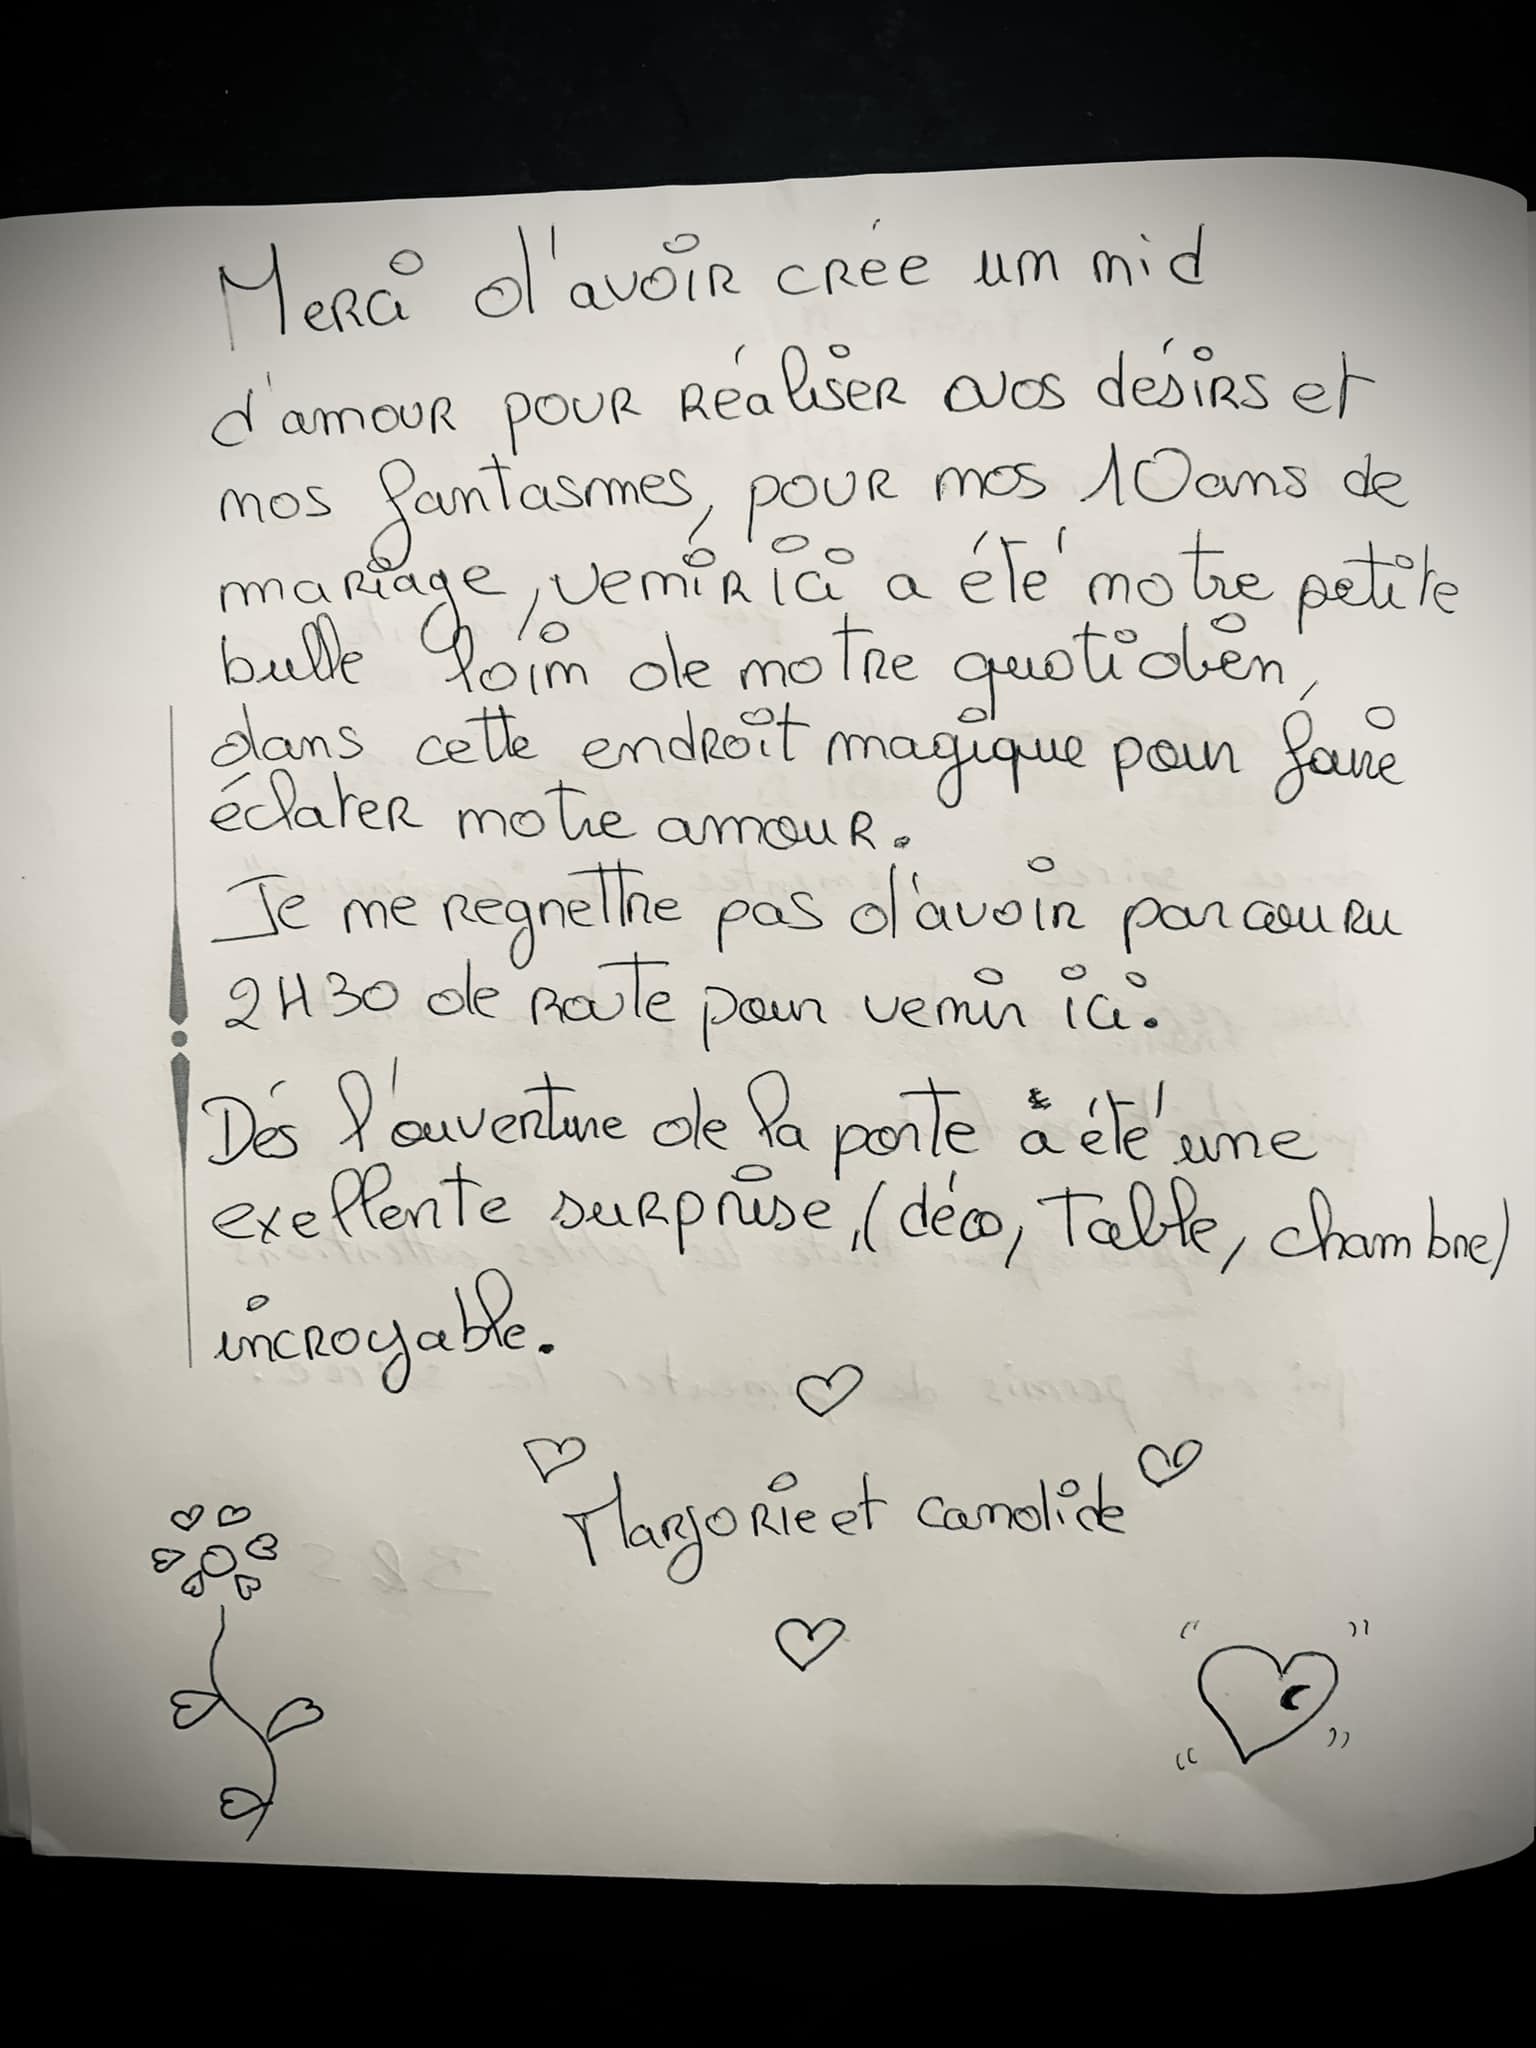 Merci d'avoir crée un nid
d'amour pour réaliser nos désirs et
nos fantasmes, pour nos 10 ans de
mariage, venir ici a été notre petite
bulle loin de notre quotidien,
dans cette endroit magique pour faire
éclater notre amour.
Je ne regrettre pas d'avoir parcouru
2H30 de route pour venir ici.
Dés l'ouverture de la porte a été une
exellente surprise, (déco, Table, chambre)
incroyable.
Marjorie et candide